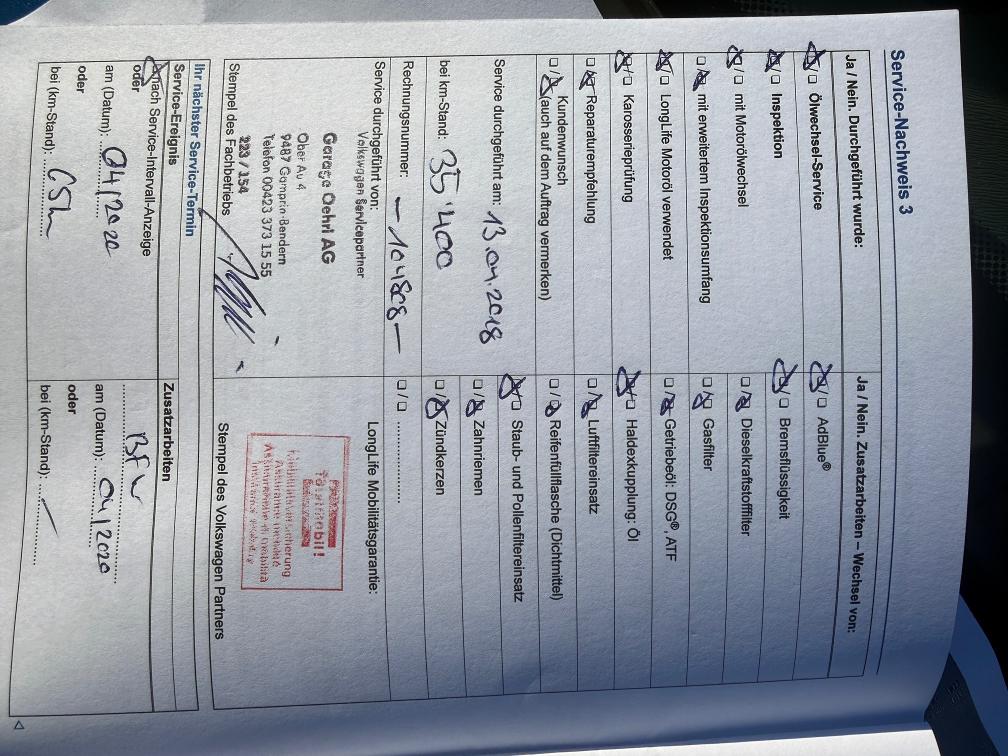 Service-Nachweis 3
Ja / Nein. Durchgeführt wurde:
☒/☐ Ölwechsel-Service
☒/☐ Inspektion
☒/☐ mit Motorölwechsel
☐/☒ mit erweitertem Inspektionsumfang
☒/☐ LongLife Motoröl verwendet
☒/☐ Karosserieprüfung
☐/☒ Reparaturempfehlung
☐/☒ Kundenwunsch
(auch auf dem Auftrag vermerken)
Service durchgeführt am: 13.04.2018
bei km-Stand: 35'400
Rechnungsnummer: – 104808 –
Service durchgeführt von:
Volkswagen Servicepartner
Garage Oehri AG
Ober Au 4
9487 Gamprin-Bendern
Telefon 00423 373 15 55
223 / 154
Stempel des Fachbetriebs
Ja / Nein. Zusatzarbeiten – Wechsel von:
☒/☐ AdBlue®
☒/☐ Bremsflüssigkeit
☐/☒ Dieselkraftstofffilter
☐/☒ Gasfilter
☐/☒ Getriebeöl: DSG®, ATF
☒/☐ Haldexkupplung: Öl
☐/☒ Luftfiltereinsatz
☐/☒ Reifenfüllflasche (Dichtmittel)
☒/☐ Staub- und Pollenfiltereinsatz
☐/☒ Zahnriemen
☐/☒ Zündkerzen
☐/☐ ..................
LongLife Mobilitätsgarantie:
Totalmobil!
Mobilitätsversicherung
Assurance mobilité
Assicurazione di mobilità
Stempel des Volkswagen Partners
Ihr nächster Service-Termin
Service-Ereignis
☒ nach Service-Intervall-Anzeige
oder
am (Datum): 04/2020
oder
bei (km-Stand):
Zusatzarbeiten
BFW
am (Datum): 04/2020
oder
bei (km-Stand): –